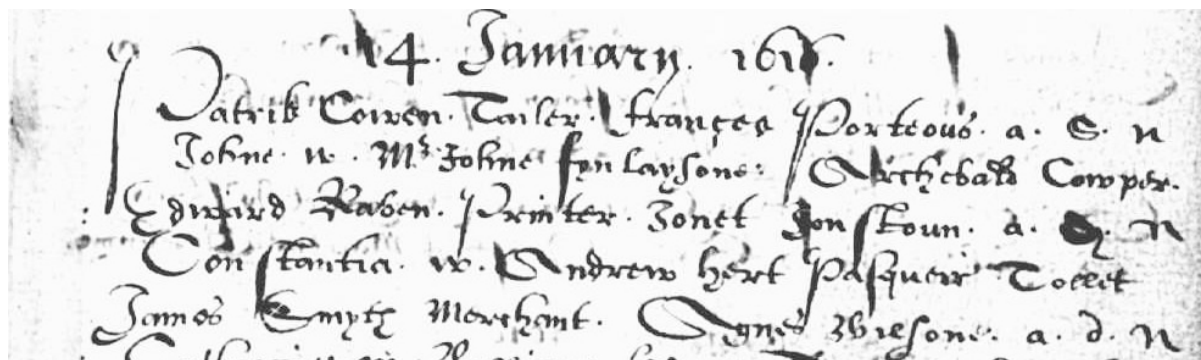 14. January. 1616.
Patrik Cowen. Tailer. frances Porteous. a. S. n
Johne. w. Mr Johne fynlaysone: Archebald Cowper.
Edward Raben. Printer. Jonet Jonstoun. a. D. n
Constantia. w. Andrew hert Pasqueir Tollet
James Smyth Merchant. Agnes Wilsone. a. d. n